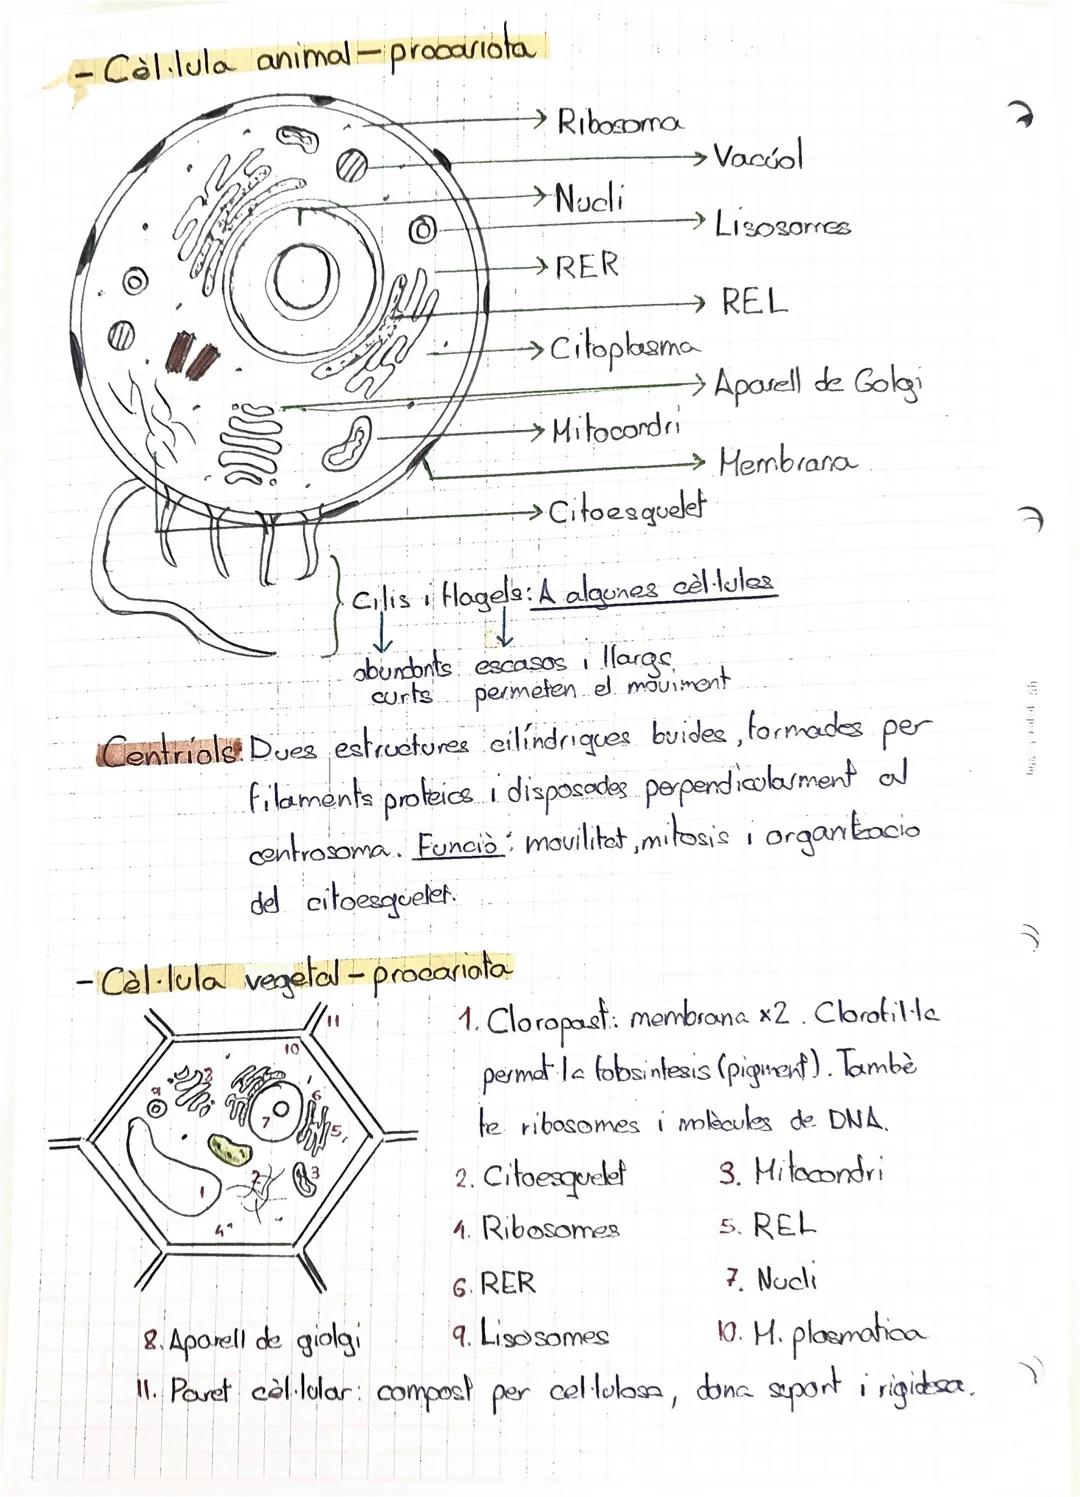 - Cèl·lula animal - procariota
Ribosoma
Vacúol
Nucli
Lisosomes
RER
REL
Citoplasma
Aparell de Golgi
Mitocondri
Membrana
Citoesquelet
Cilis i flagels: A algunes cèl·lules
abundants escasos i llargs,
curts permeten el moviment
Centríols: Dues estructures cilíndriques buides, formades per
filaments proteics i disposades perpendicularment al
centrosoma. Funciò: movilitat, mitosis i organitzacio
del citoesquelet.
- Cèl·lula vegetal - procariota
11
10
9
8
6
7
5
2
3
1
4
1. Cloropast: membrana x2. Clorofil·la
permet la fotosintesis (pigment). Tambè
te ribosomes i molècules de DNA.
2. Citoesquelet 3. Mitocondri
4. Ribosomes 5. REL
6. RER 7. Nucli
8. Aparell de giolgi 9. Lisosomes 10. M. plasmatica
11. Paret cèl·lular: compost per cel·lulosa, dona suport i rigidesa.